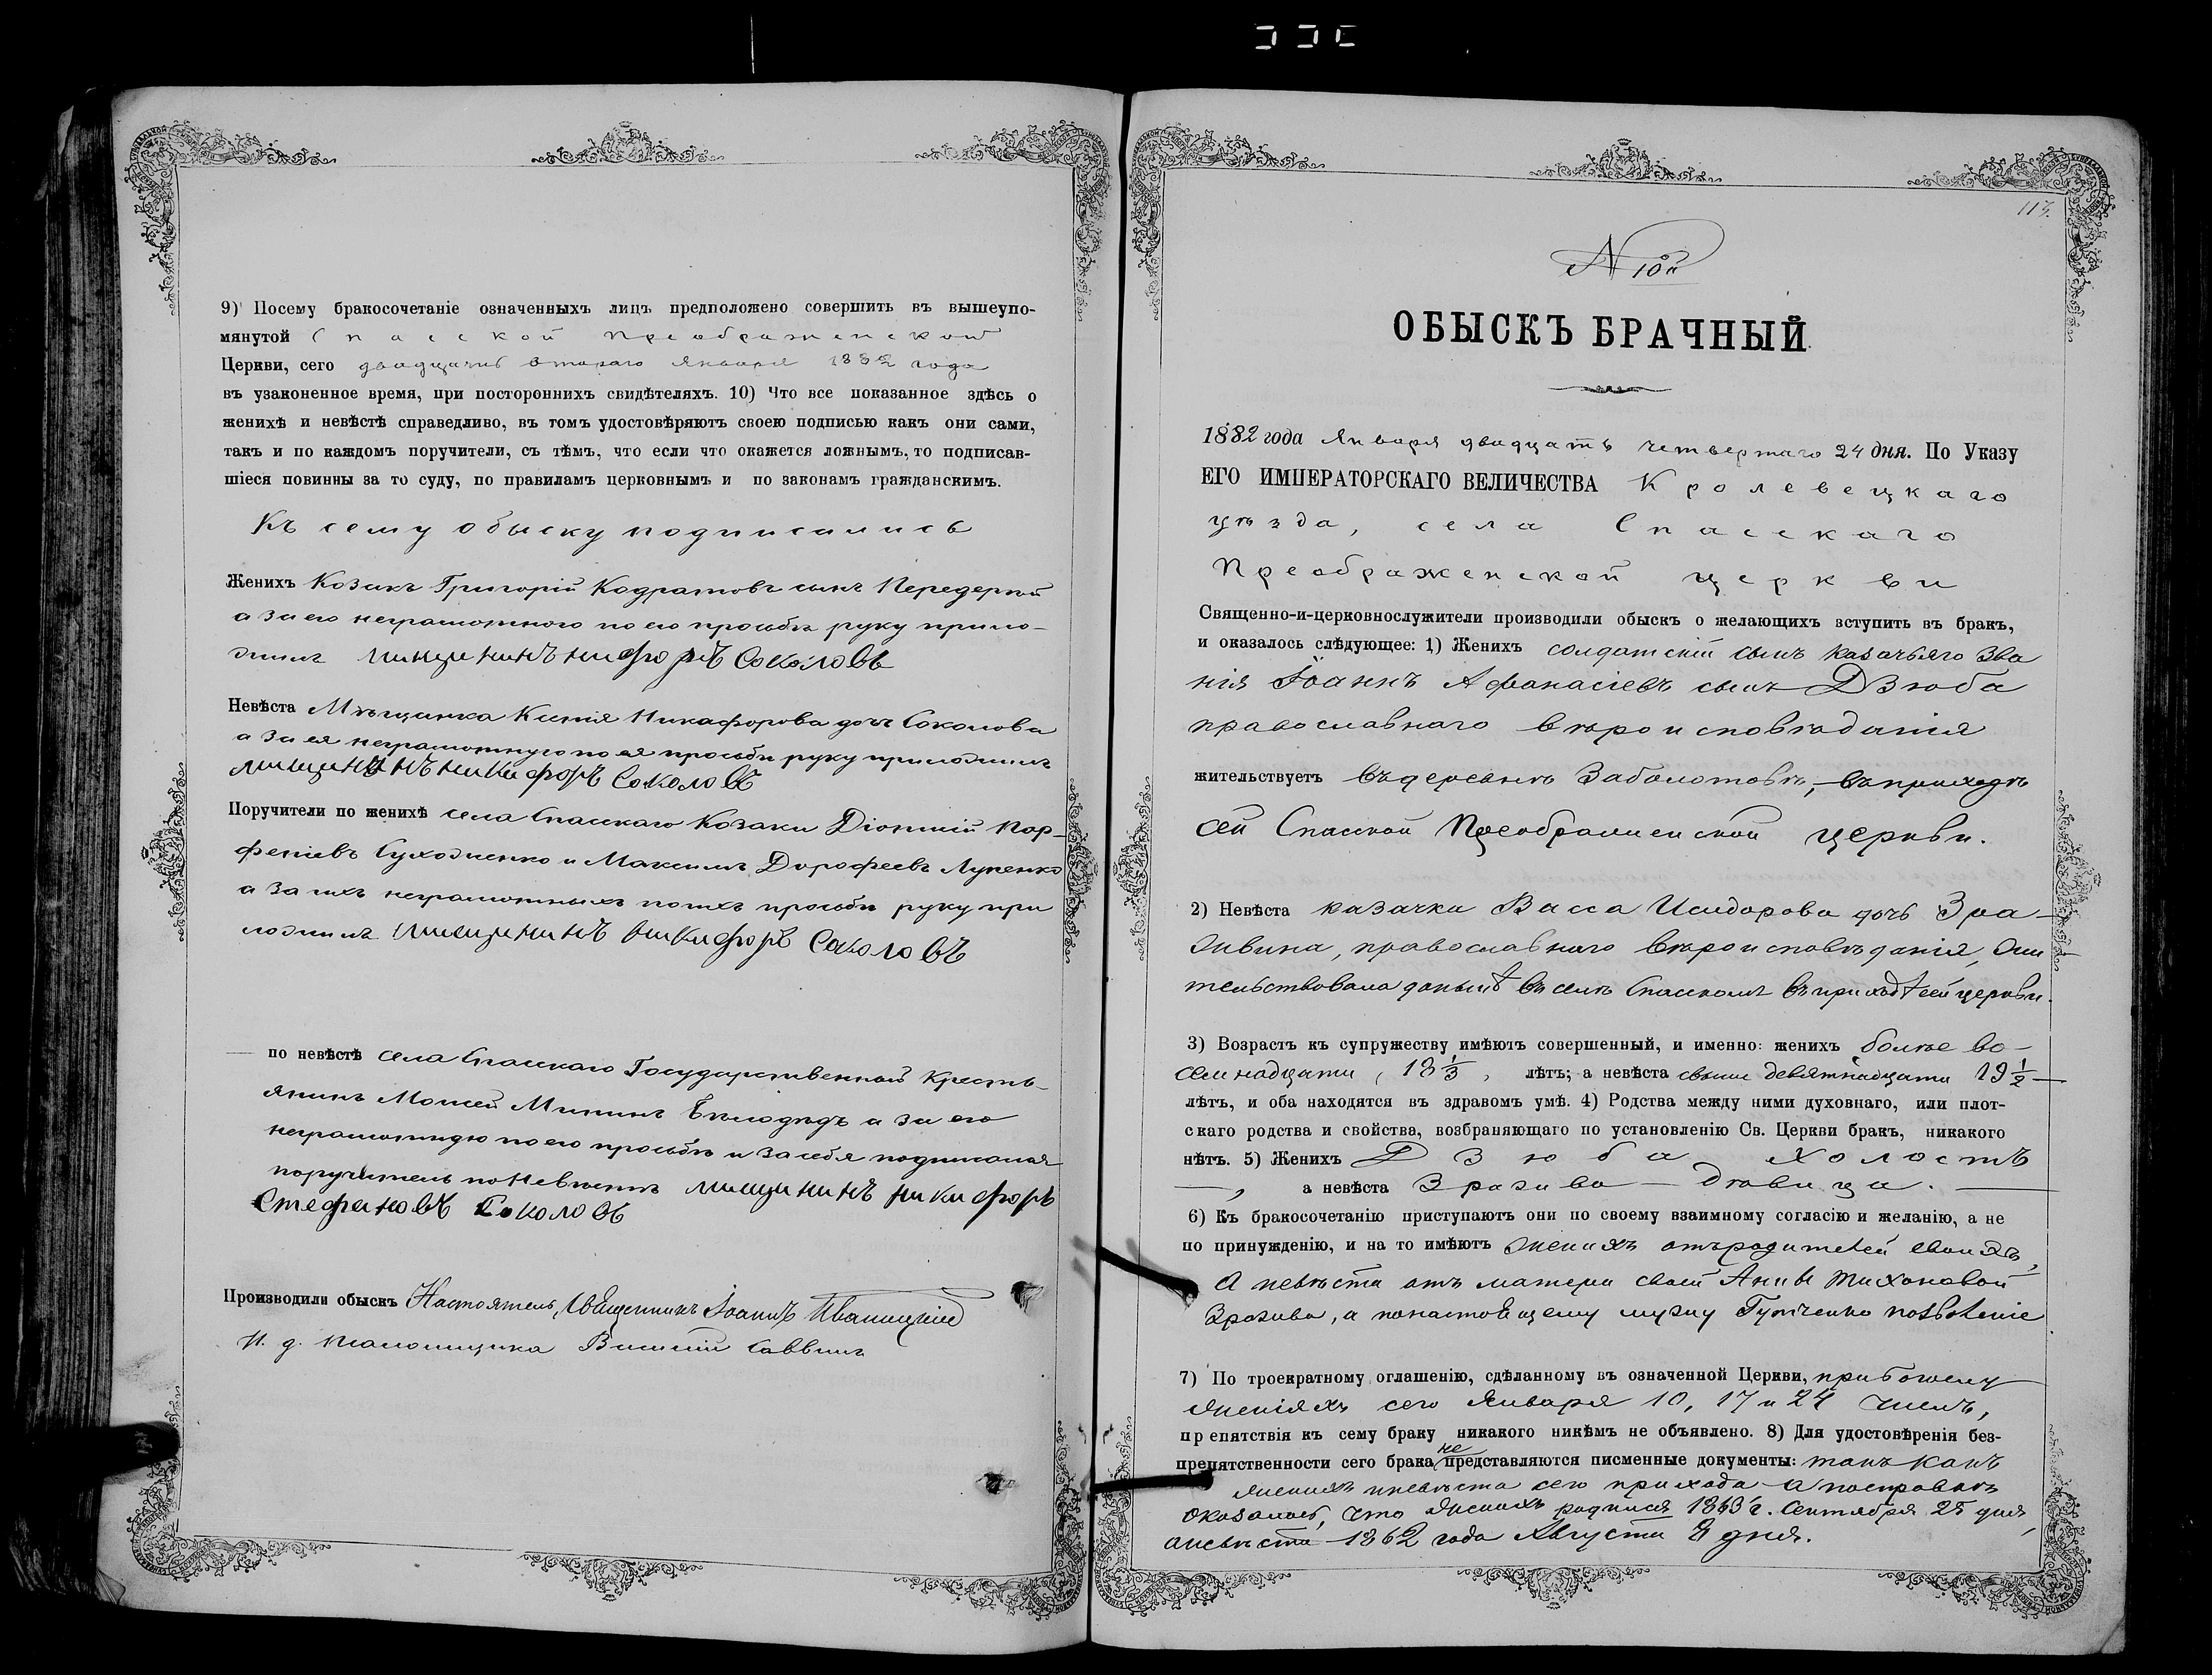 9) Посему бракосочетаніе означенныхъ лицъ предположено совершить въ вышеупо-
мянутой Спасской Преображенской
Церкви, сего двадцать втораго Января 1882 года
въ узаконенное время, при постороннихъ свидѣтеляхъ. 10) Что все показанное здѣсь о
женихѣ и невѣстѣ справедливо, въ томъ удостовѣряютъ своею подписью какъ они сами,
такъ и по каждомъ поручители, съ тѣмъ, что если что окажется ложнымъ, то подписав-
шіеся повинны за то суду, по правиламъ церковнымъ и по законамъ гражданскимъ.
Къ сему обыску подписались
Женихъ Козакъ Григорій Кодратовъ сынъ Передерий
а за его неграмотного по его просьбѣ руку прило-
жилъ мищининъ никифоръ Соколовъ
Невѣста Мѣщанка Ксенія Никифорова дочь Соколова
а за ея неграмотную по ея просьбѣ руку приложилъ
мищининъ никифоръ Соколовъ
Поручители по женихѣ села Спасскаго Козаки Діонисій Пар-
феніевъ Сухозненко и Максимъ Дорофеевъ Лупенко
а за ихъ неграмотныхъ по ихъ просьбѣ руку при
ложилъ мищининъ никифоръ Соколовъ
по невѣстѣ села Спасскаго Государственный Кресть-
янинъ Моисей Мининъ Бѣлодѣдъ а за его
неграмотнаго по его просьбѣ и за себя подписался
поручитель по невѣстѣ мищининъ никифоръ
Стефановъ Соколовъ
Производили обыскъ Настоятель, Священникъ Іоаннъ Иваницкій
И. д. псаломщика Василій Саввинъ
113.
N 10й
ОБЫСКЪ БРАЧНЫЙ.
1882 года Января двадцать четвертаго 24 дня. По Указу
ЕГО ИМПЕРАТОРСКАГО ВЕЛИЧЕСТВА Кролевецкаго
уѣзда, села Спасскаго
Преображенской церкви
Священно-и-церковнослужители производили обыскъ о желающихъ вступить въ бракъ,
и оказалось слѣдующее: 1) Женихъ солдатскій сынъ казачьяго зва
нія Іоаннъ Афанасіевъ сынъ Дзюба
православнаго вѣроисповѣданія
жительствуетъ въ деревнѣ Заболотовѣ, въ приходѣ
сей Спасской Преображенской церкви.
2) Невѣста казачка Васса Исидорова дочь Зра-
жвина, православнаго вѣроисповѣданія, жи
тельствовала донынѣ въ селѣ Спасскомъ въ приходѣ сей церкви.
3) Возрастъ къ супружеству имѣютъ совершенный, и именно: женихъ болѣе во-
семнадцати, 18 1/3, лѣтъ; а невѣста свыше девятнадцати 19 1/2
лѣтъ, и оба находятся въ здравомъ умѣ. 4) Родства между ними духовнаго, или плот-
скаго родства и свойства, возбраняющаго по установленію Св. Церкви бракъ, никакого
нѣтъ. 5) Женихъ Дзюба холостъ
, а невѣста Зражва — дѣвица.
6) Къ бракосочетанію приступаютъ они по своему взаимному согласію и желанію, а не
по принужденію, и на то имѣютъ женихъ отъ родителей своихъ,
а невѣста отъ матери своей Анны Тихоновой
Зражва, а по настоящему мужу Гутченко позволеніе
7) По троекратному оглашенію, сдѣланному въ означенной Церкви, при богослу
женіяхъ сего Января 10, 17 и 24 числъ,
препятствія къ сему браку никакого никѣмъ не объявлено. 8) Для удостовѣренія без-
препятственности сего брака не представляются писменные документы: такъ какъ
женихъ и невѣста сего прихода а по справкѣ
оказалось, что женихъ родился 1863 г. Сентября 25 дня,
а невѣста 1862 года Августа 8 дня.